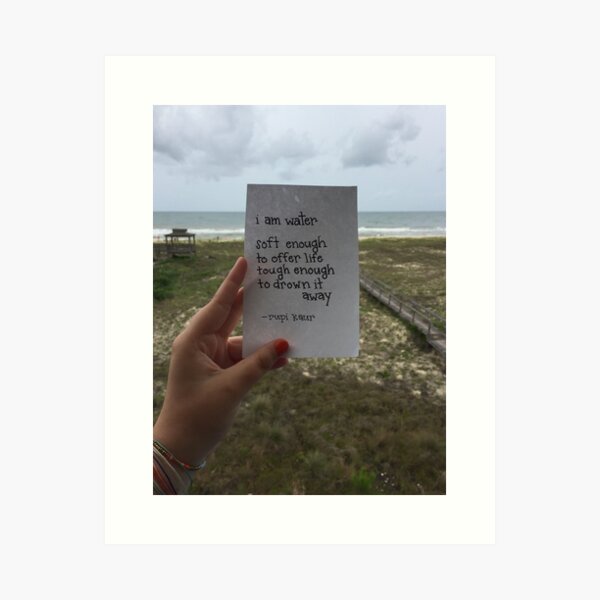 i am water
soft enough
to offer life
tough enough
to drown it
away
-rupi kaur